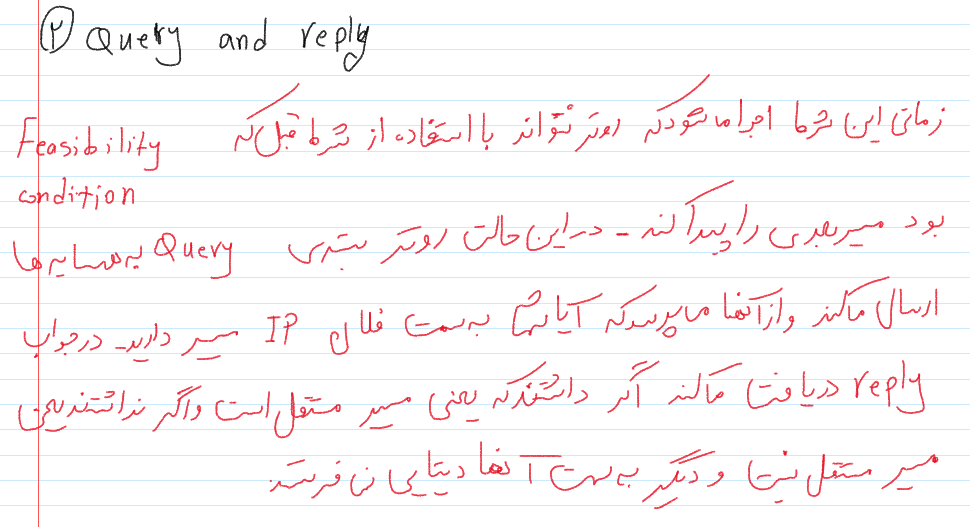 ۲ Query and reply
زمانی این شرط اجرا میشود که روتر نتواند با استفاده از شرط قبل که Feasibility
condition
بود مسیر بعدی را پیدا کند - در این حالت روتر بسته ی Query به همسایه ها
ارسال میکند و از آنها می پرسد که آیا شما به سمت فلان IP مسیر دارید - در جواب
reply دریافت میکند اگر داشتند که یعنی مسیر مستقل است و اگر نداشتند یعنی
مسیر مستقل نیست و دیگر به سمت آنها دیتایی نمی فرستد.